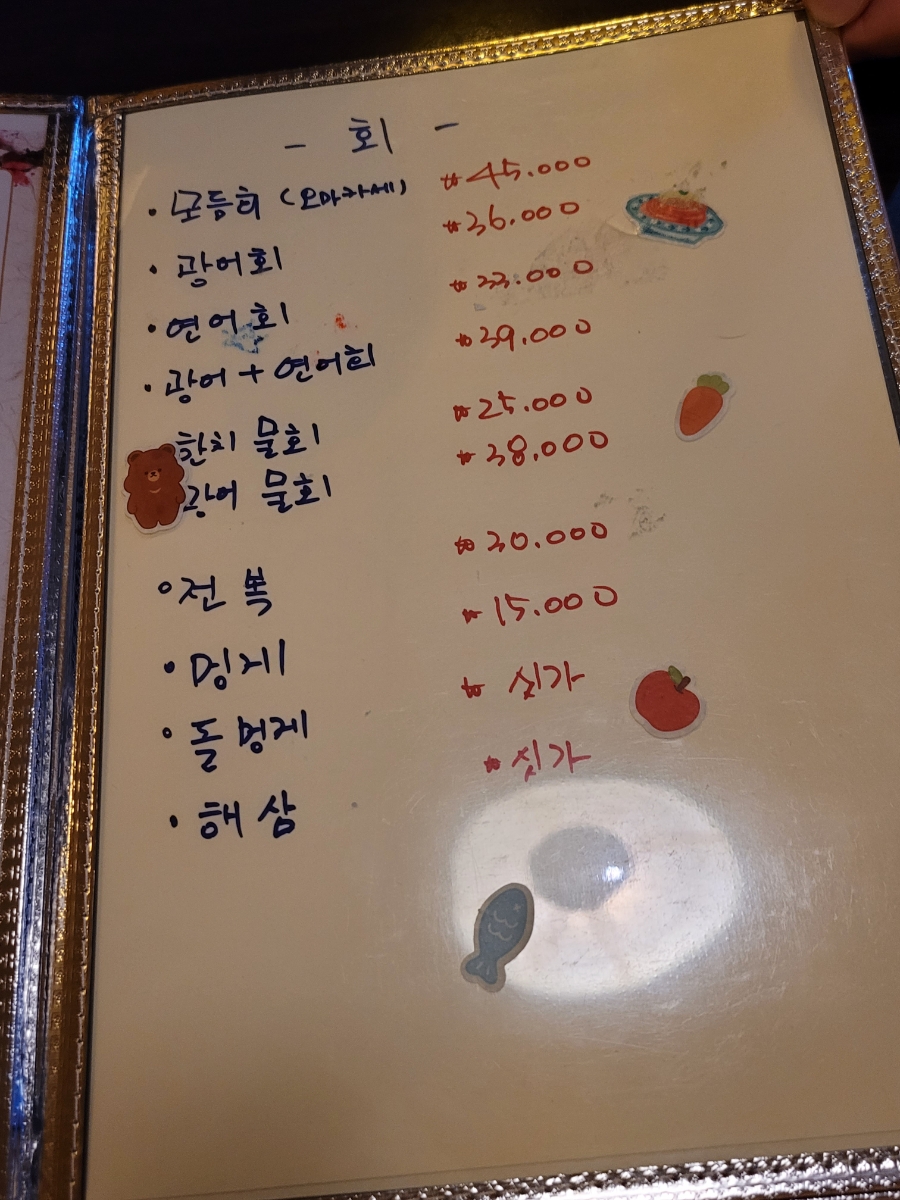 - 회 -
· 모듬회 (오마카세) ₩45.000
· 광어회 ₩36.000
· 연어회 ₩33.000
· 광어 + 연어회 ₩39.000
한치 물회 ₩25.000
광어 물회 ₩38.000
· 전복 ₩30.000
· 멍게 ₩15.000
· 돌멍게 ₩ 싯가
· 해삼 ₩ 싯가